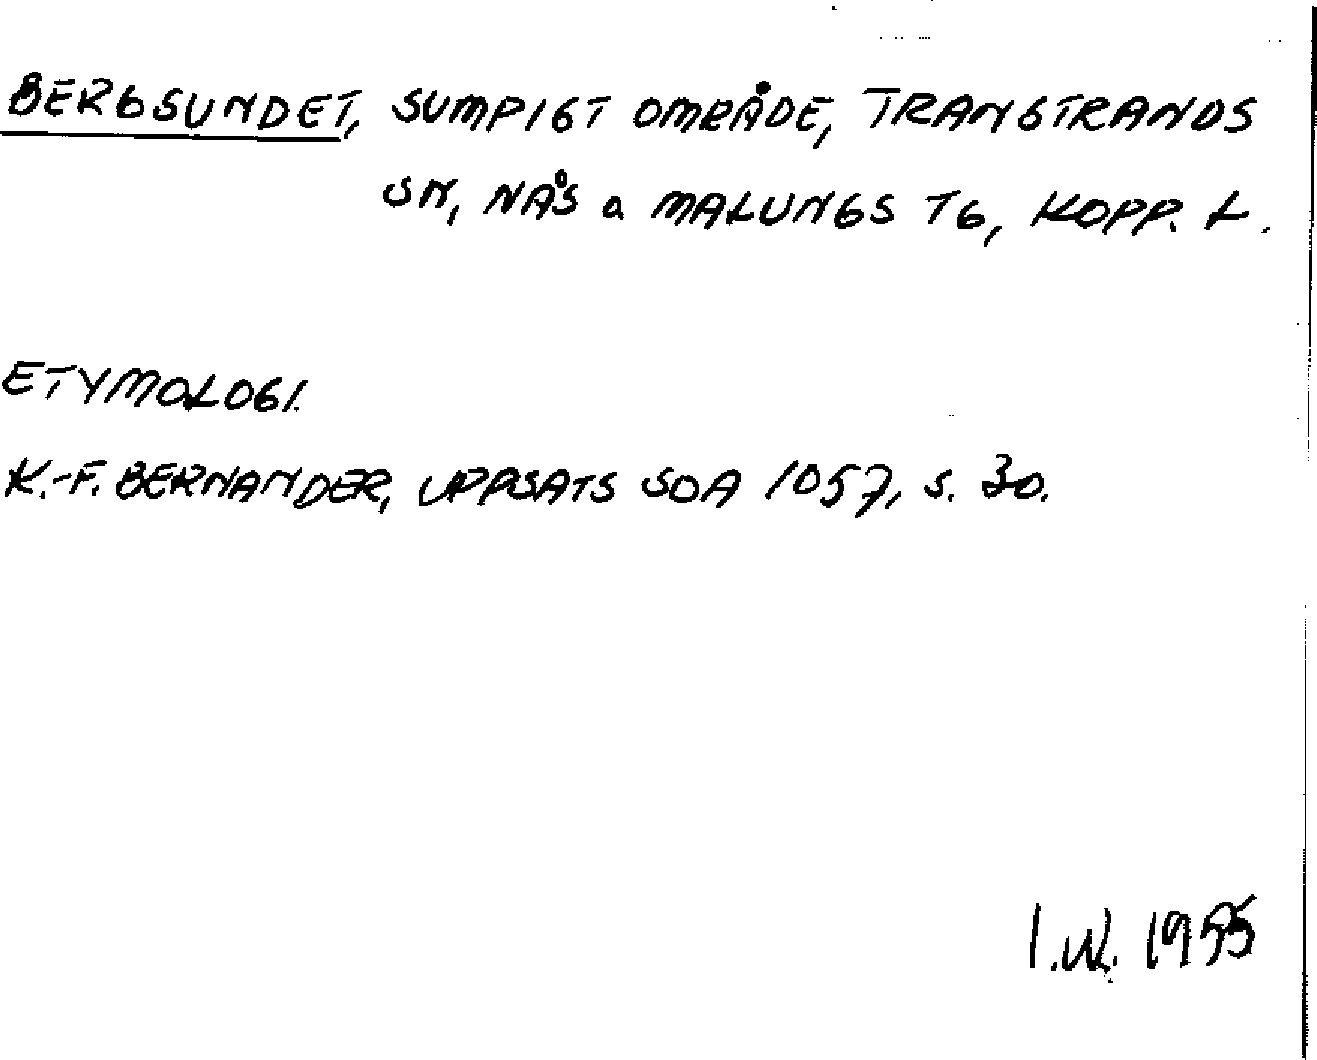 BERGSUNDET, SUMPIGT OMRÅDE, TRANSTRANDS
SN, NÅS a MALUNGS TG, KOPP. L.
ETYMOLOGI.
K.-F. BERNANDER, UPPSATS SOA 1057, S. 30.
I.W. 1955